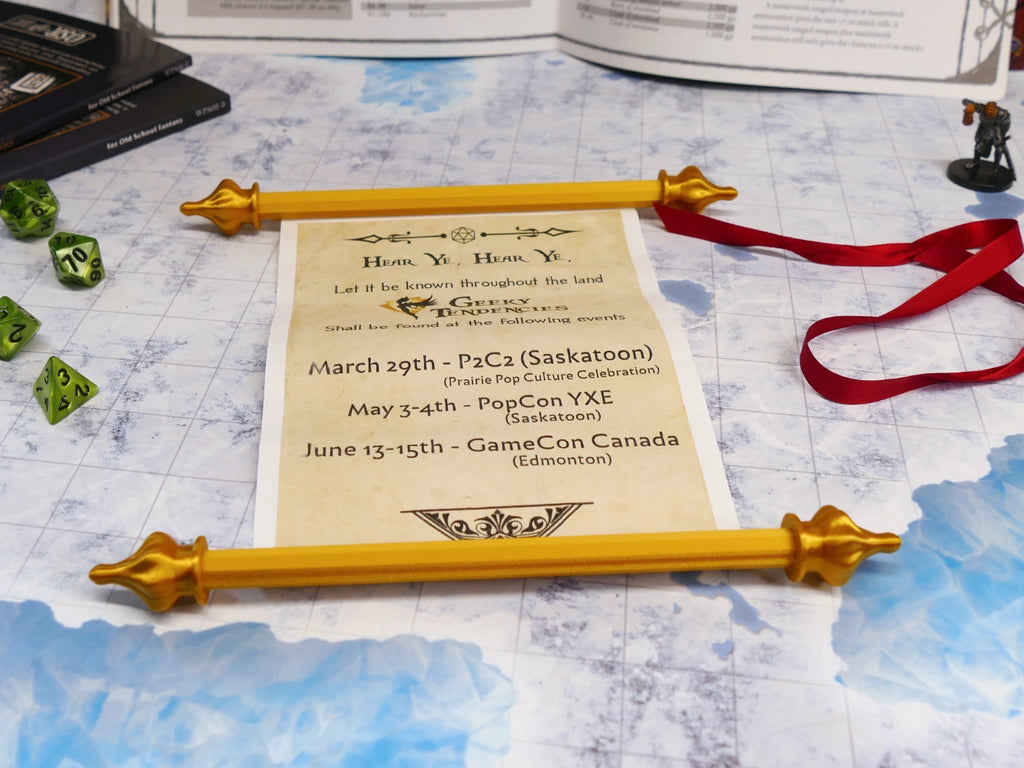 for Old School Fantasy
for Old School Fantasy
Hear Ye, Hear Ye,
Let it be known throughout the land
Geeky
Tendencies
Shall be found at the following events
March 29th - P2C2 (Saskatoon)
(Prairie Pop Culture Celebration)
May 3-4th - PopCon YXE
(Saskatoon)
June 13-15th - GameCon Canada
(Edmonton)
6
10
2
3
4
2